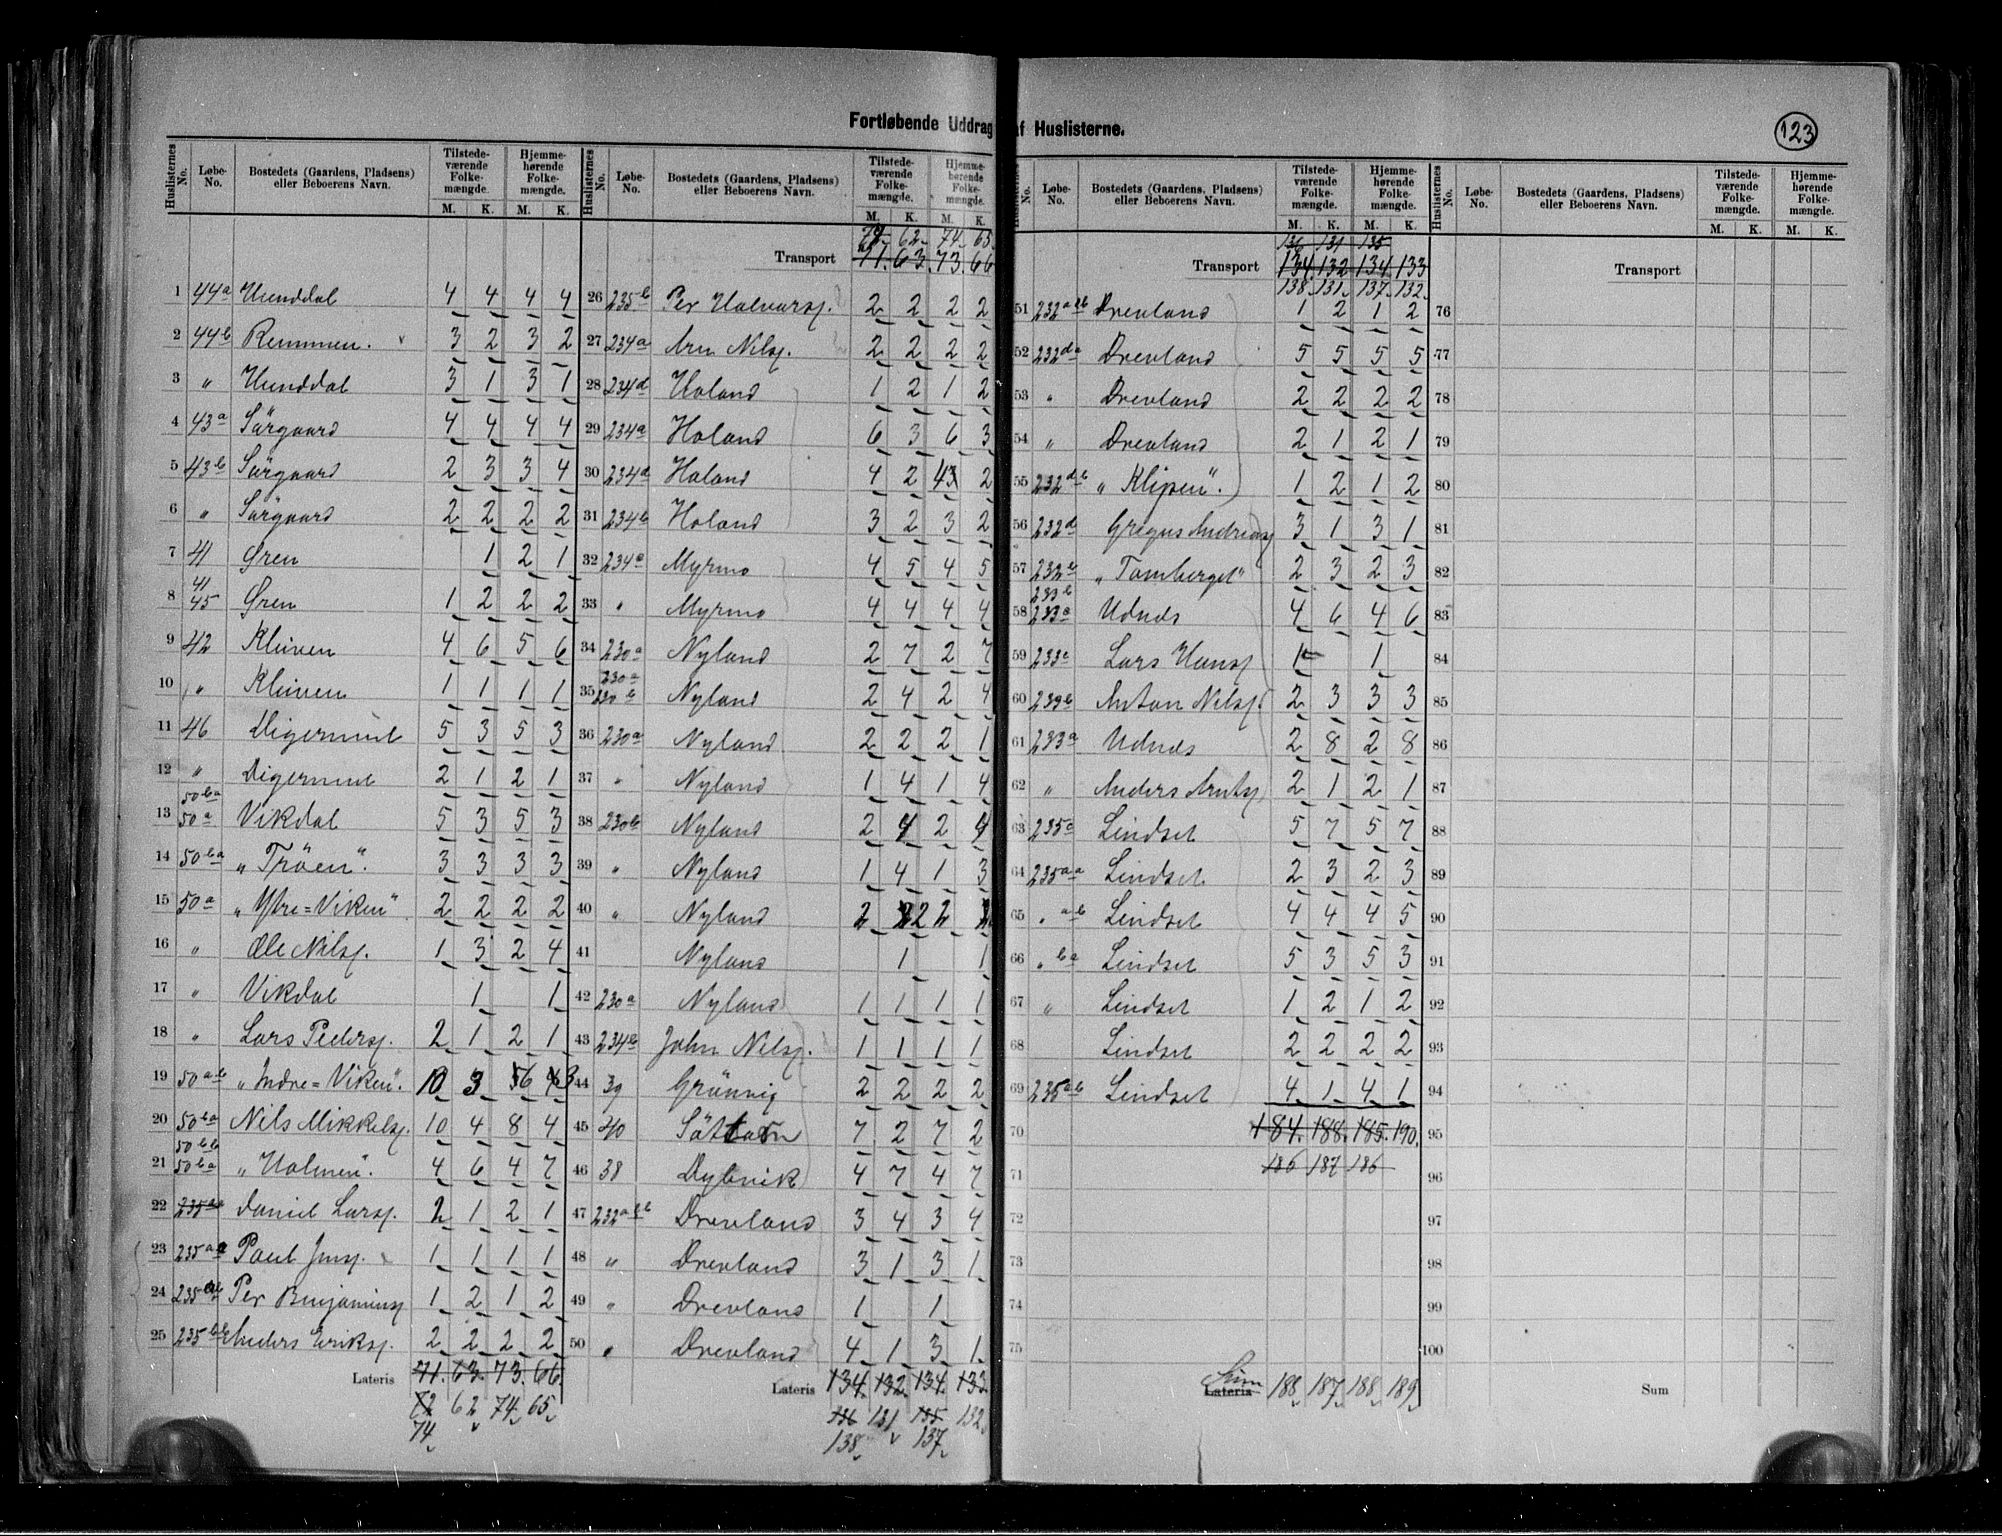 Fortløbende Uddrag af Huslisterne.
123
Huslisternes No. Løbe-No. Bostedets (Gaardens, Pladsens) eller Beboerens Navn. Tilstedeværende Folkemængde. M. K. Hjemmehørende Folkemængde. M. K.
1 44a Hunddal 4 4 4 4
2 44b Remmen. 3 2 3 2
3 " Hunddal 3 1 3 1
4 43a Sørgaard 4 4 4 4
5 43b Sørgaard 2 3 3 4
6 " Sørgaard 2 2 2 2
7 41 Øren 1 2 1
8 41 45 Øren 1 2 2 2
9 42 Kleiven 4 6 5 6
10 " Kleiven 1 1 1 1
11 46 Digermul 5 3 5 3
12 " Digermul 2 1 2 1
13 50ba 50a Vikdal 5 3 5 3
14 50ba "Trøen". 3 3 3 3
15 50a "Ytre=Viken" 2 2 2 2
16 " Ole Nilsj. 1 3 2 4
17 " Vikdal 1 1
18 " Lars Pedersj. 2 1 2 1
19 50ab "Indre=Viken". 10 3 6 3
20 50ba Nils Mikkelsj. 10 4 8 4
21 50bb 50ba "Holmen". 4 6 4 7
22 235aa Daniel Larsj. 2 1 2 1
23 235aa Paul Jensj. 1 1 1 1
24 235ab Per Benjaminsj 1 2 1 2
25 235bb Anders Eriksj. 2 2 2 2
Lateris 71. 63. 73. 66.
72 62 74 65
74
Huslisternes No. Løbe-No. Bostedets (Gaardens, Pladsens) eller Beboerens Navn. Tilstedeværende Folkemængde. M. K. Hjemmehørende Folkemængde. M. K.
74 62 74 65
Transport 71. 63. 73. 66
26 235b Per Halvorsj. 2 2 2 2
27 234a Arn Nilsj. 2 2 2 2
28 234d Holand 1 2 1 2
29 234a Holand 6 3 6 3
30 234d Holand 4 2 4 2
31 234b Holand 3 2 3 2
32 234a Myrmo 4 5 4 5
33 " Myrmo 4 4 4 4
34 230a Nyland 2 7 2 7
35 230a 230b Nyland 2 4 2 4
36 230a Nyland 2 2 2 1
37 " Nyland 1 4 1 4
38 230b Nyland 2 4 2 4
39 " Nyland 1 4 1 3
40 " Nyland 2 2 2 2
41 Nyland 1 1
42 230a Nyland 1 1 1 1
43 234b John Nilsj. 1 1 1 1
44 39 Grønvig 2 2 2 2
45 40 Sättarn 7 2 7 2
46 38 Dybvik 4 7 4 7
47 232abb Drevland 3 4 3 4
48 " Drevland 3 1 3 1
49 " Drevland 1 1
50 " Drevland 4 1 3 1
Lateris 134. 132. 134. 133.
136 131 135 132
138 137
Huslisternes No. Løbe-No. Bostedets (Gaardens, Pladsens) eller Beboerens Navn. Tilstedeværende Folkemængde. M. K. Hjemmehørende Folkemængde. M. K.
136 131 135
Transport 134. 132 134. 133
138. 131. 137. 132.
51 232abb Drevland 1 2 1 2
52 232da Drevland 5 5 5 5
53 " Drevland 2 2 2 2
54 " Drevland 2 1 2 1
55 232db "Klipen". 1 2 1 2
56 232d Gregus Andreasj 3 1 3 1
57 232b "Tomberget" 2 3 2 3
58 233b 233a Udnæs 4 6 4 6
59 233a Lars Hansj 1 1
60 233b Anton Nilsj. 2 3 3 3
61 233a Udnæs 2 8 2 8
62 " Anders Arntsj 2 1 2 1
63 235a Lindset 5 7 5 7
64 235aa Lindset. 2 3 2 3
65 " ab Lindset 4 4 4 5
66 " ba Lindset 5 3 5 3
67 " Lindset 1 2 1 2
68 Lindset 2 2 2 2
69 235ab Lindset 4 1 4 1
70 184. 188. 185. 190.
71 186 187 186
72
73
74
75
Sum
Lateris 188 187 188 189
Huslisternes No. Løbe-No. Bostedets (Gaardens, Pladsens) eller Beboerens Navn. Tilstedeværende Folkemængde. M. K. Hjemmehørende Folkemængde. M. K.
Transport
76
77
78
79
80
81
82
83
84
85
86
87
88
89
90
91
92
93
94
95
96
97
98
99
100
Sum